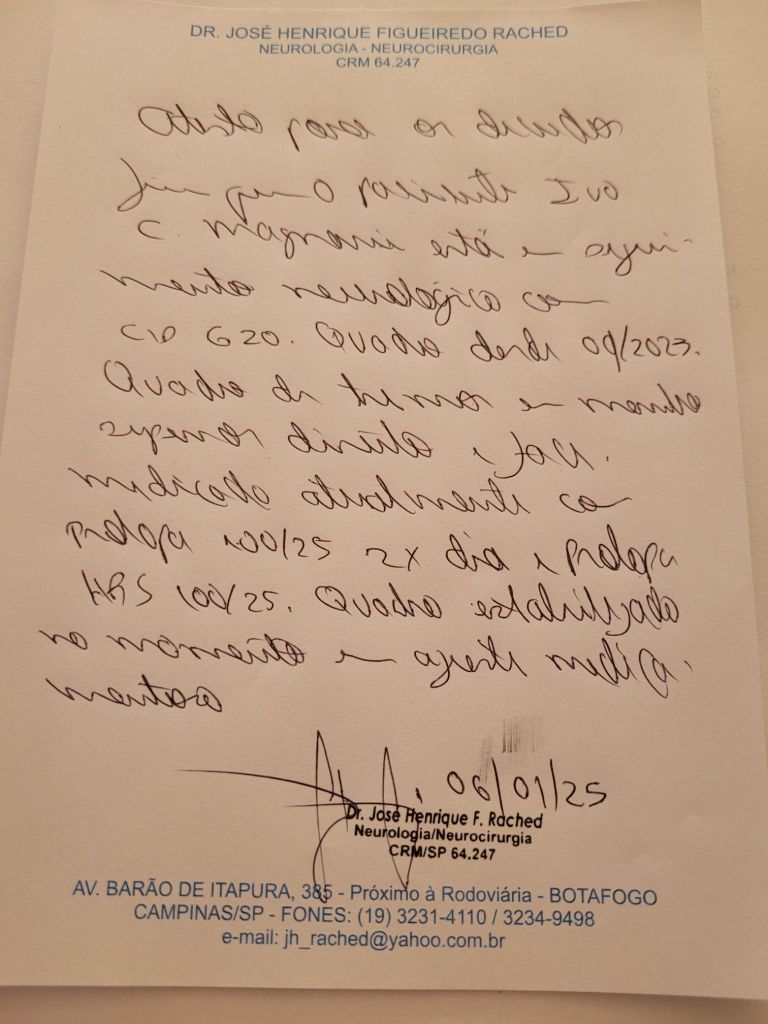 DR. JOSÉ HENRIQUE FIGUEIREDO RACHED
NEUROLOGIA - NEUROCIRURGIA
CRM 64.247
Atesto para os devidos
fins que o paciente Ivo
C. Magnani está em segui-
mento neurológico com
CID G20. Quadro desde 09/2023.
Quadro de tremor em membro
superior direito e face.
medicado atualmente com
prolopa 100/25 2x dia e prolopa
HBS 100/25. Quadro estabilizado
no momento em ajuste medica-
mentoso
06/01/25
Dr. José Henrique F. Rached
Neurologia/Neurocirurgia
CRM/SP 64.247
AV. BARÃO DE ITAPURA, 385 - Próximo à Rodoviária - BOTAFOGO
CAMPINAS/SP - FONES: (19) 3231-4110 / 3234-9498
e-mail: jh_rached@yahoo.com.br